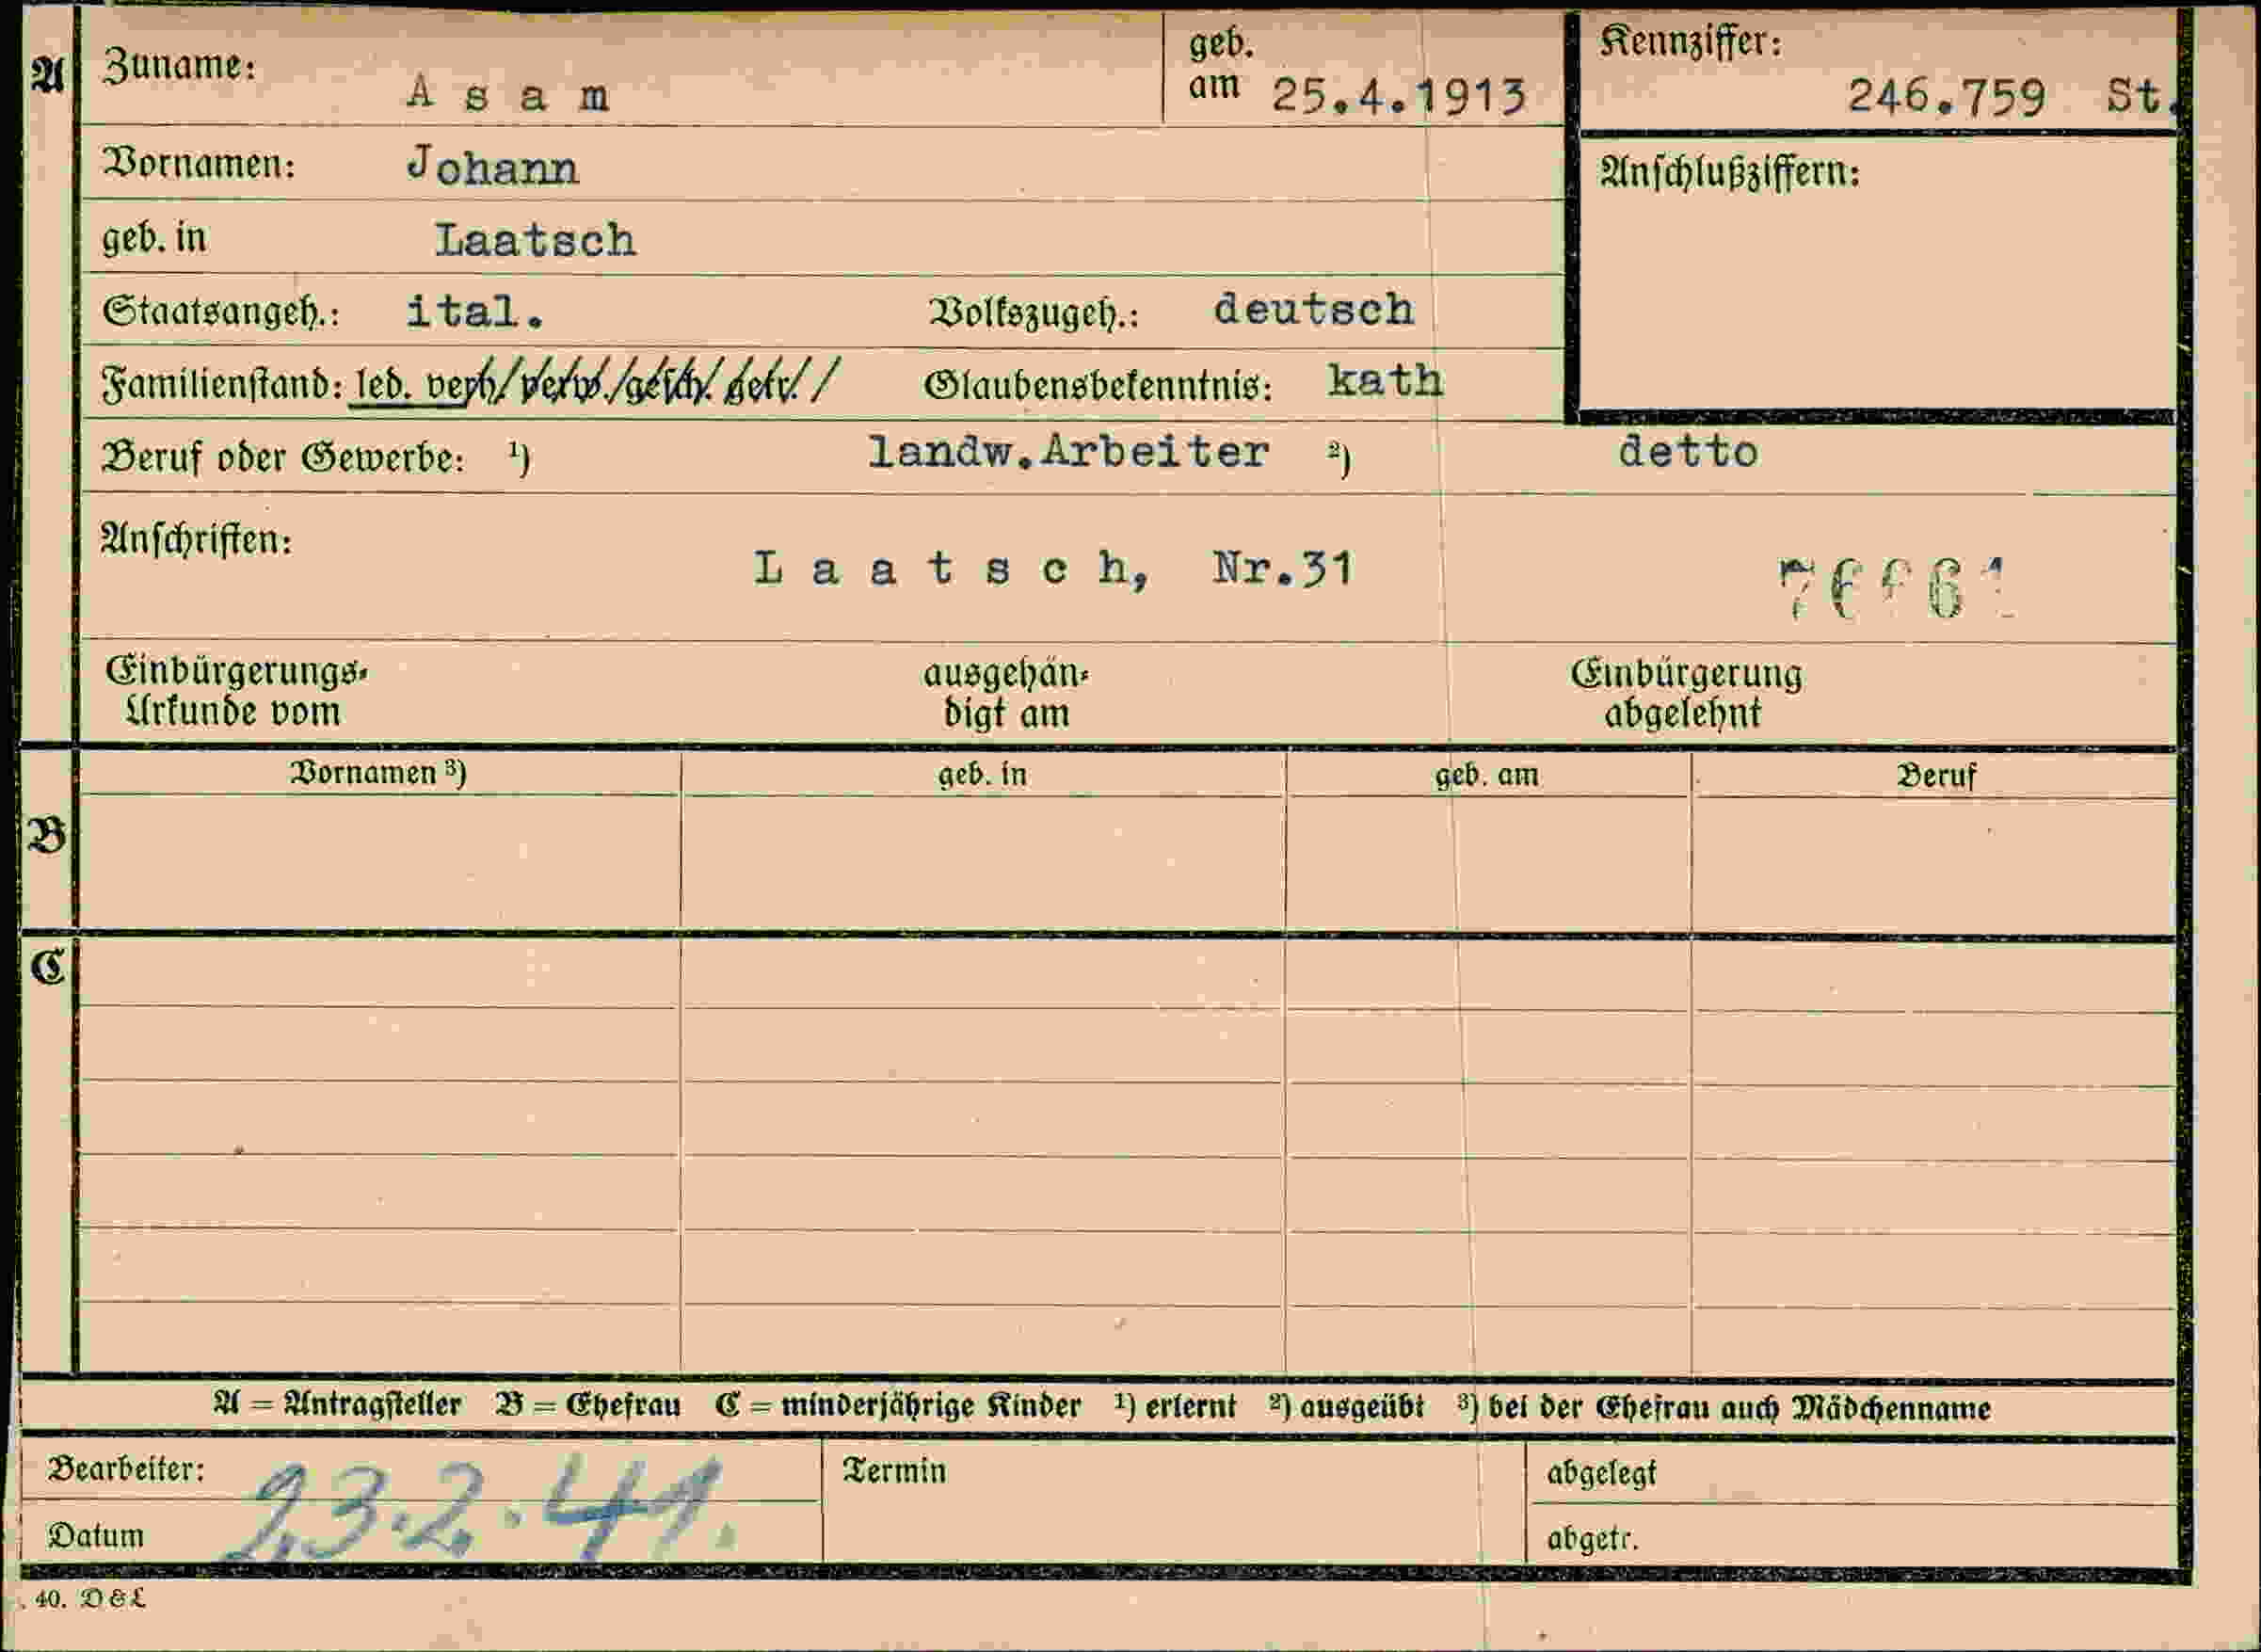 A Zuname: A s a m geb. am 25.4.1913 Kennziffer: 246.759 St.
Vornamen: Johann Anschlußziffern:
geb. in Laatsch
Staatsangeh.: ital. Volkszugeh.: deutsch
Familienstand: led. verh. verw. gesch. getr. Glaubensbekenntnis: kath
Beruf oder Gewerbe: ¹) landw.Arbeiter ²) detto
Anschriften: L a a t s c h, Nr.31
Einbürgerungs- ausgehän- Einbürgerung
Urkunde vom digt am abgelehnt
Vornamen ³) geb. in geb. am Beruf
B
C
A = Antragsteller B = Ehefrau C = minderjährige Kinder ¹) erlernt ²) ausgeübt ³) bei der Ehefrau auch Mädchenname
Bearbeiter: Termin abgelegt
Datum 23.2.41. abgetr.
40. D & L